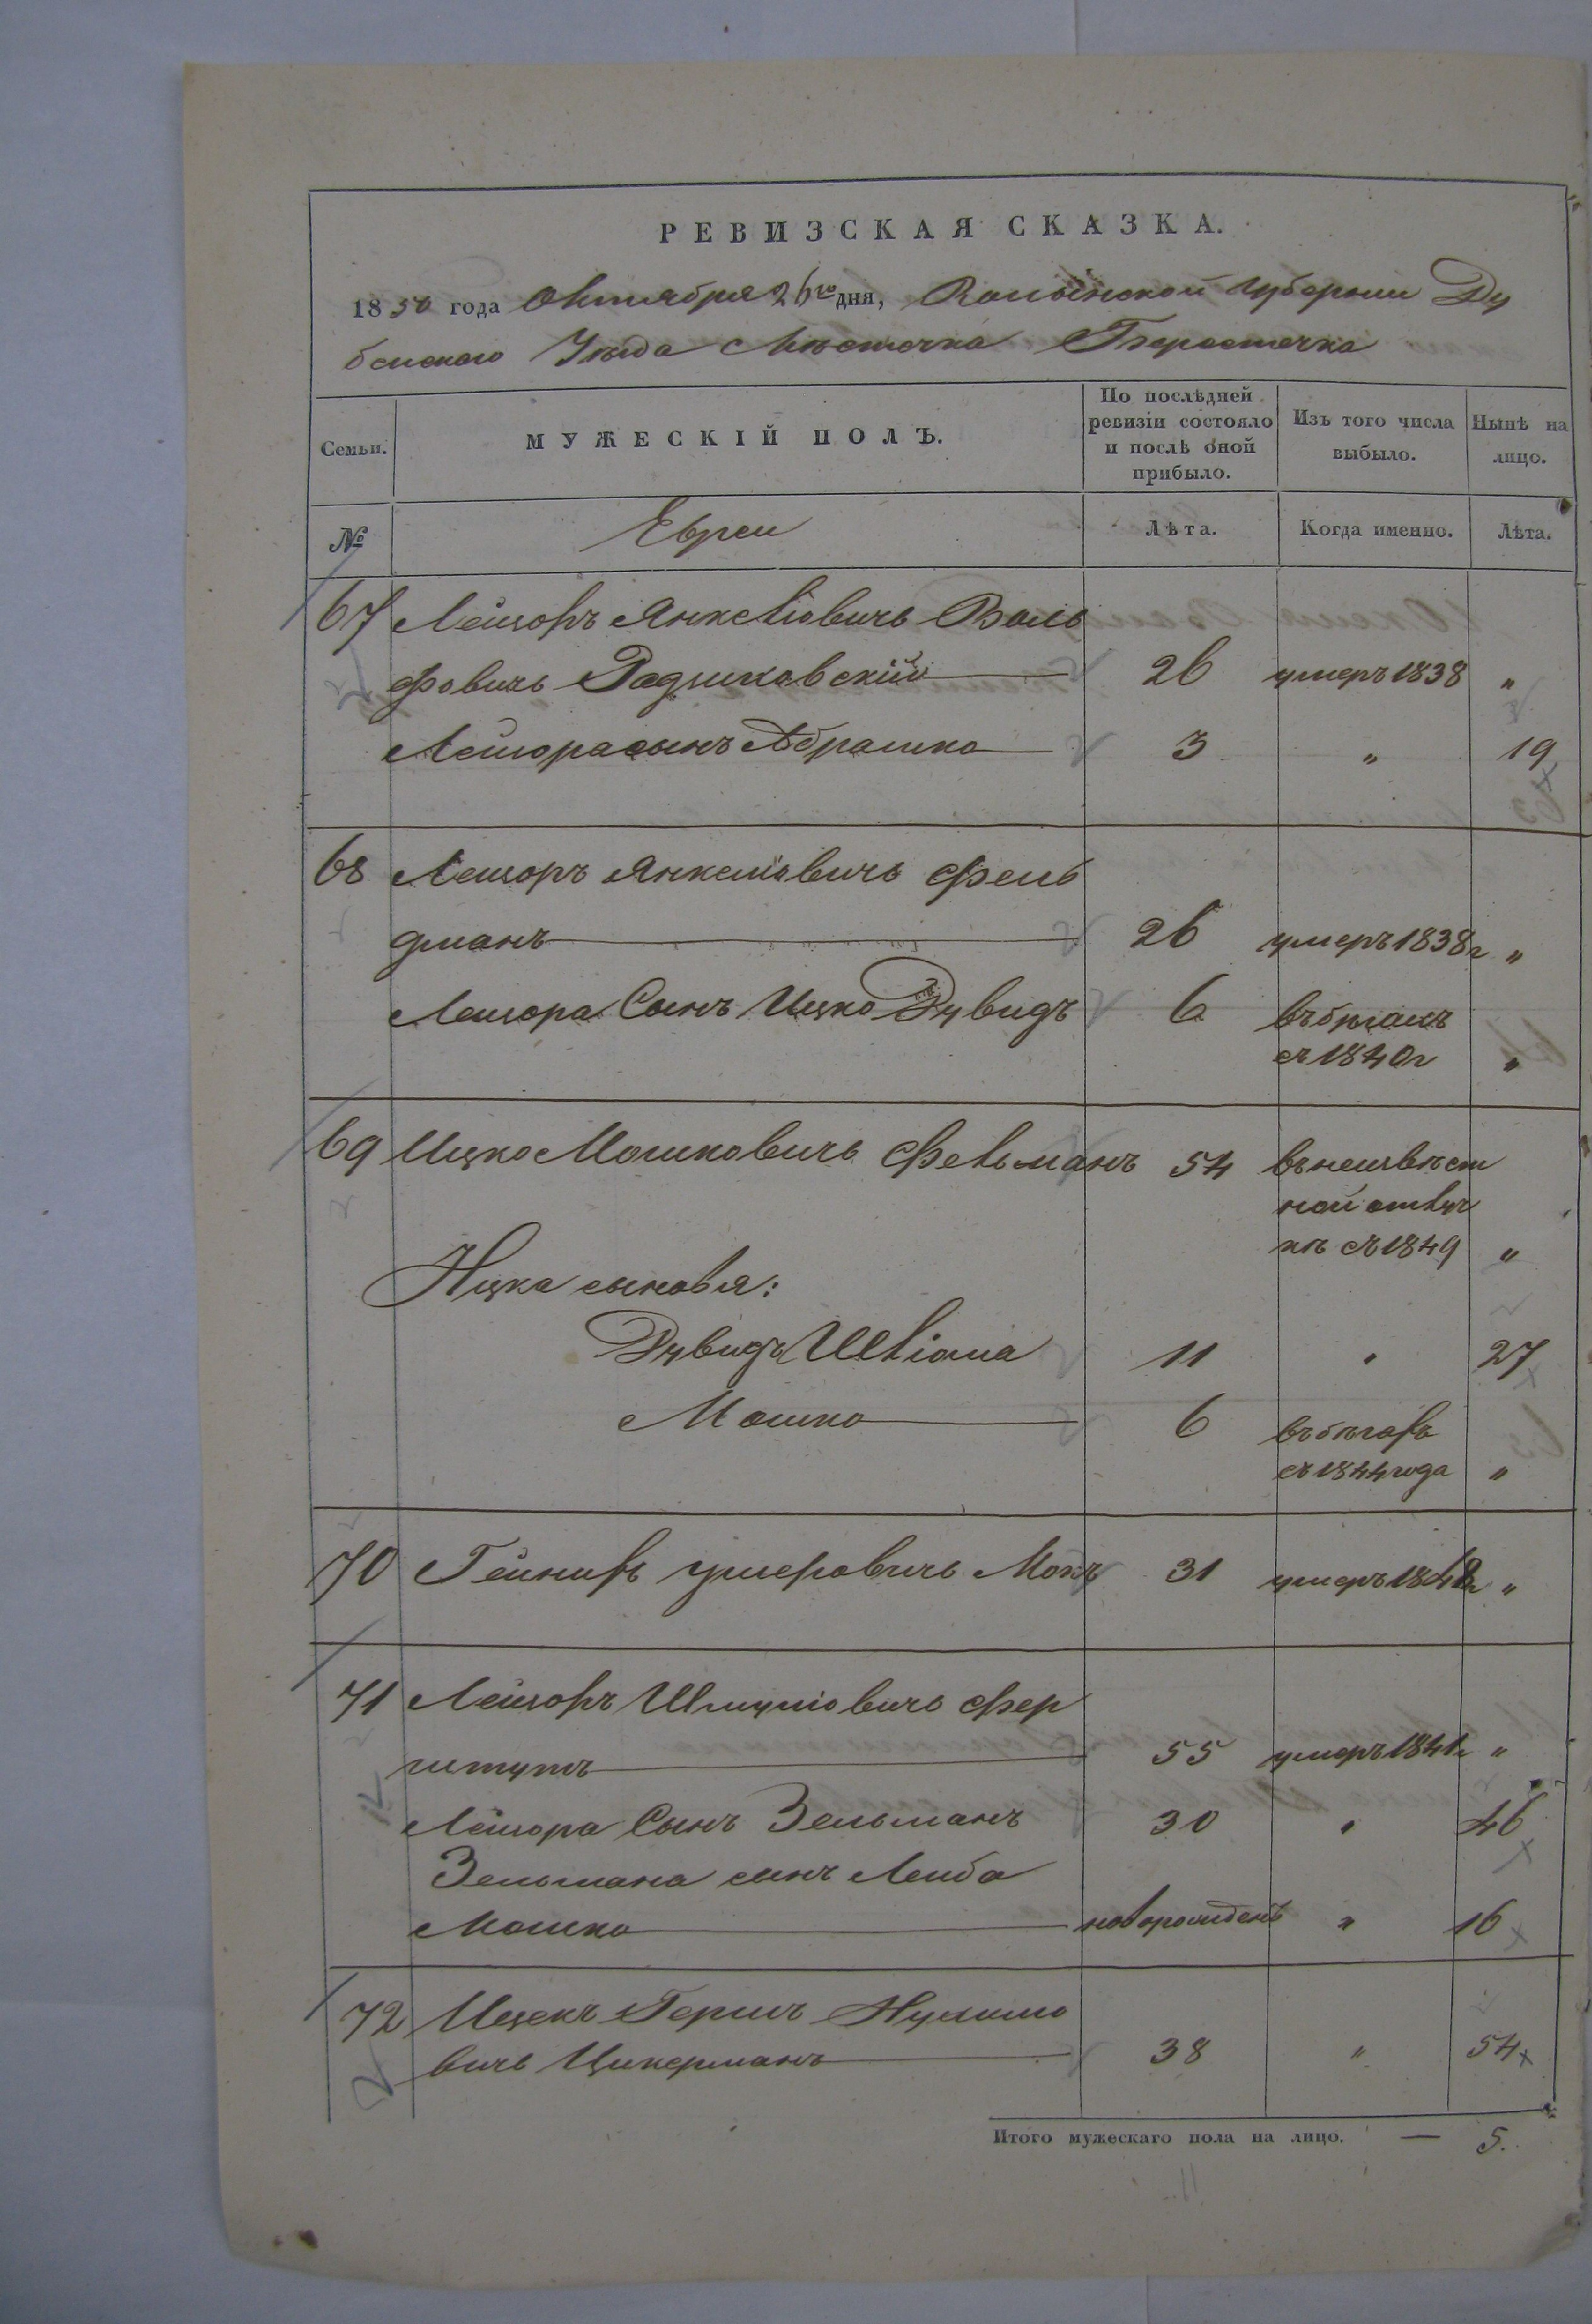 РЕВИЗСКАЯ СКАЗКА.
1850 года Октября 26го дня, Волынской Губернии Ду
бенского Уѣзда Мѣстечка Берестечка
Семьи.
МУЖЕСКІЙ ПОЛЪ.
По послѣдней ревизіи состояло и послѣ оной прибыло.
Изъ того числа выбыло.
Нынѣ на лицо.
№
Евреи
Лѣта.
Когда именно.
Лѣта.
67 Лейзоръ Янкеліовичъ Воль
фовичъ Радзиковскій 26 умеръ 1838 "
Лейзора сынъ Абрашко 3 " 19
68 Лейзоръ Янкеліовичъ Фель
дманъ 26 умеръ 1838г "
Лейзора Сынъ Ицко Дувидъ 6 въ бѣгахъ
съ 1840г "
69 Ицко Мошковичъ Фельманъ 54 въ неизвѣст
ной отлуч
кѣ съ 1849 "
Ицка сыновья:
Дувидъ Шліома 11 " 27
Мошко 6 въ бѣгахъ
съ 1844 года "
70 умеровичъ 31 умеръ "
71 Лейзоръ Шмуліовичъ Фер
штутъ 55 умеръ 1841г "
Лейзора Сынъ Зельманъ 30 " 46
Зельмана сынъ Лейба
Мошко новорожденъ " 16
72 Ицекъ Гершъ
вичъ Цикерманъ 38 " 54
Итого мужескаго пола на лицо. — 5.